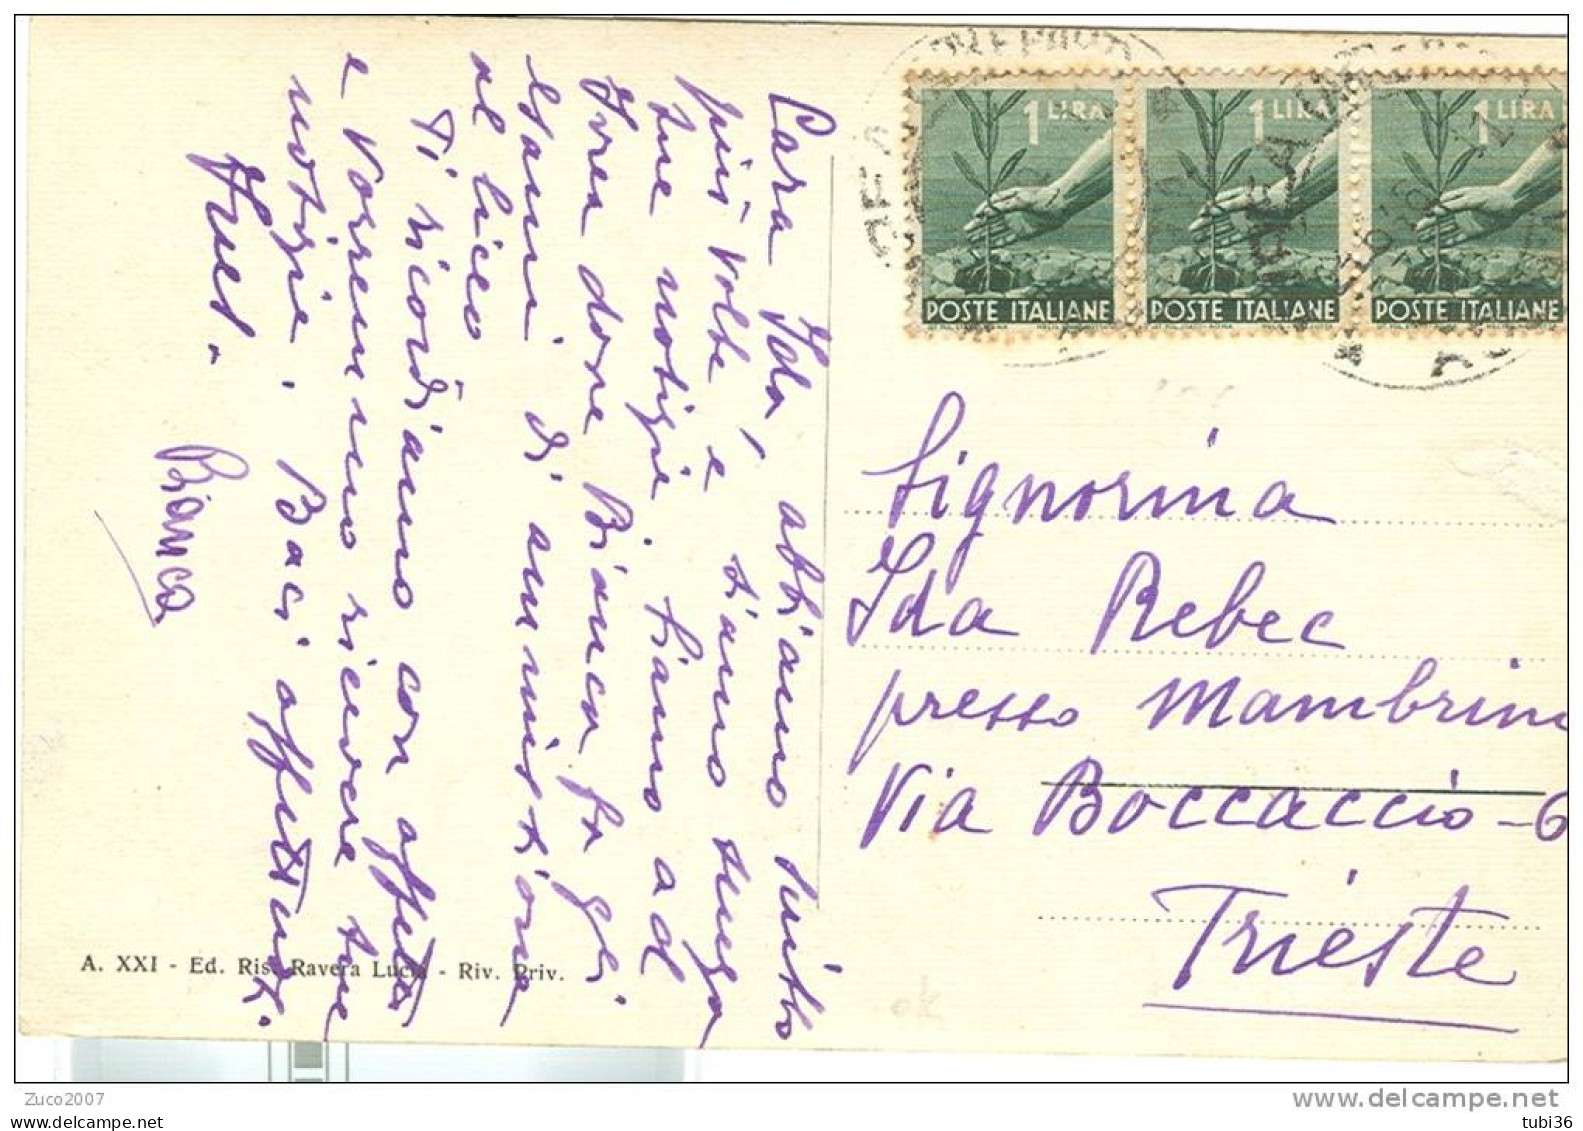 Cara Ida, abbiamo scritto
più volte e siamo senza
tue notizie. Siamo ad
Ivrea dove Bianca fa gli
esami di ammissione
al liceo
Ti ricordiamo con affetto
e vorremmo ricevere tue
notizie. Baci affettuosi.
Bianca
1 LIRA
POSTE ITALIANE
1 LIRA
POSTE ITALIANE
1 LIRA
POSTE ITALIANE
Signorina
Ida Rebec
presso Mambrini
Via Boccaccio - 6
Trieste
A. XXI - Ed. Ris. Ravera Lucia - Riv. Priv.
Zuco2007
www.delcampe.net
tubi36